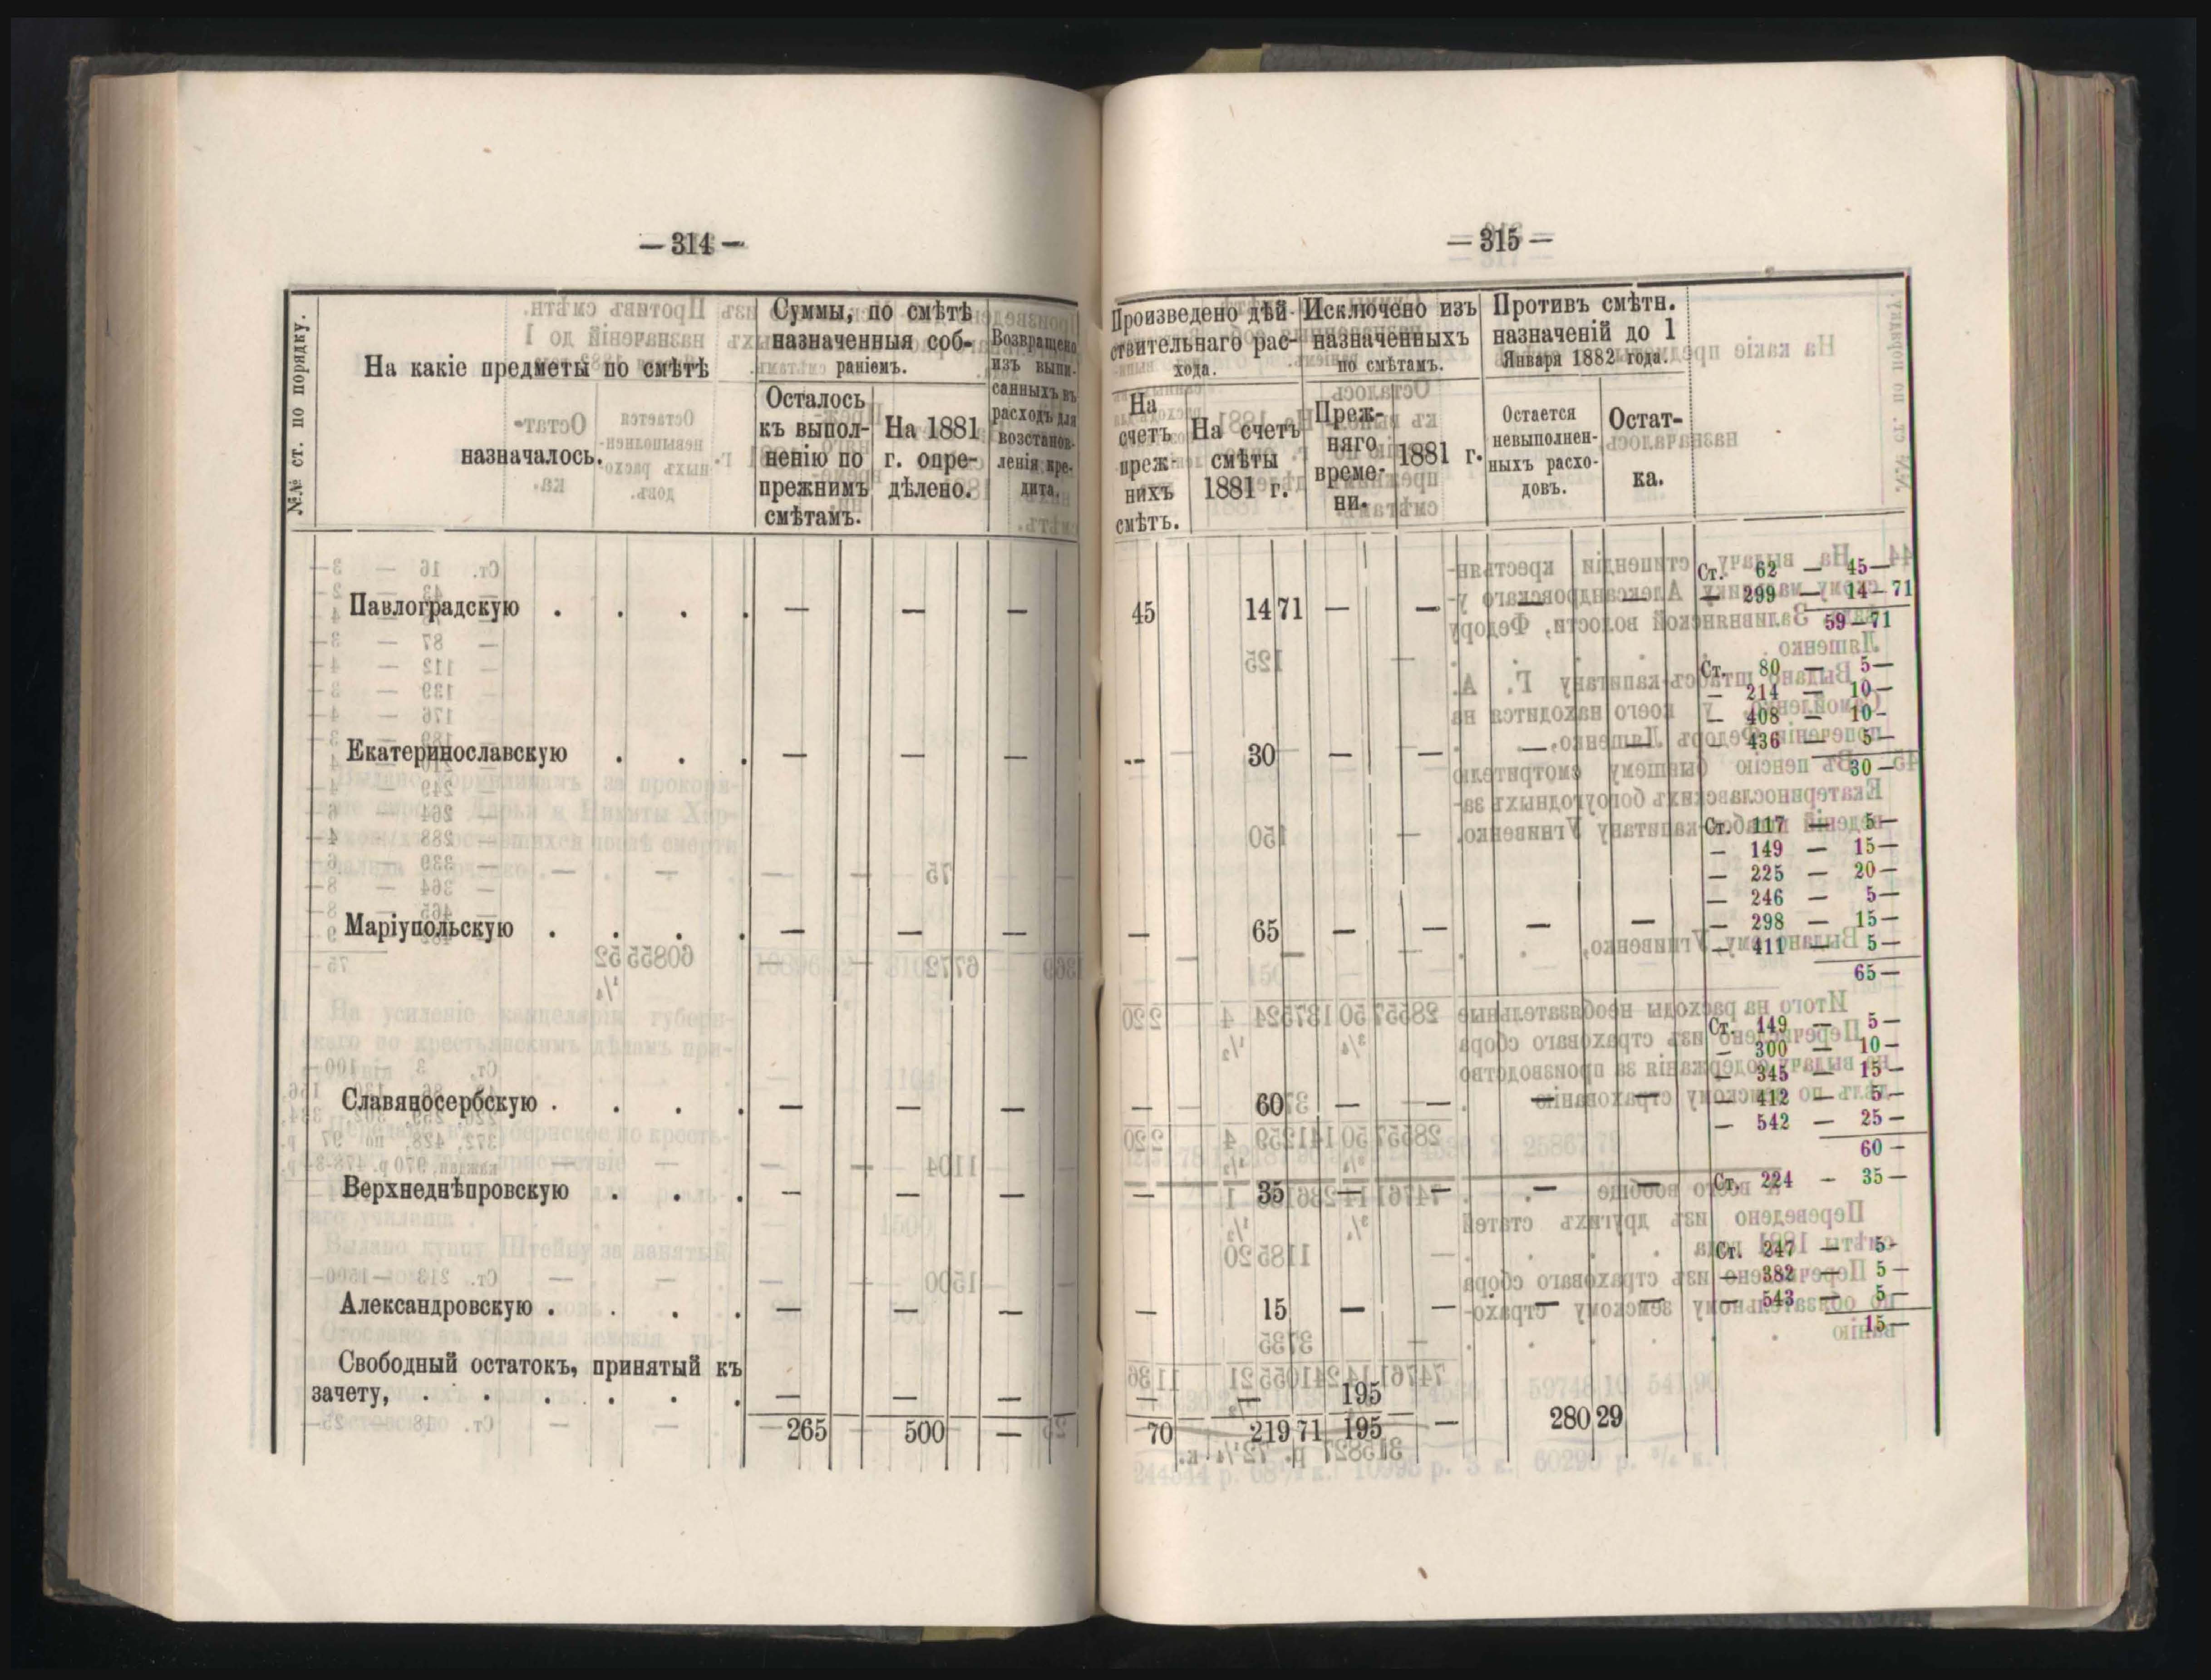 — 314 —
№№ ст. по порядку.
На какіе предметы по смѣтѣ
назначалось.
Суммы, по смѣтѣ
назначенныя соб-
раніемъ.
Осталось
къ выпол-
ненію по
прежнимъ
смѣтамъ.
На 1881
г. опре-
дѣлено.
Возвращено
изъ выпи-
санныхъ въ
расходъ для
возстанов-
ленія кре-
дита.
Павлоградскую . . . . — — —
Екатеринославскую . . . — — —
Маріупольскую . . . . — — —
Славяносербскую . . . . — — —
Верхнеднѣпровскую . . . — — —
Александровскую . . . . — — —
Свободный остатокъ, принятый къ
зачету, . . . . . . — — —
265 — 500 — —
— 315 —
Произведено дѣй-
ствительнаго рас-
хода.
На
счетъ
преж-
нихъ
смѣтъ.
На счетъ
смѣты
1881 г.
Исключено изъ
назначенныхъ
по смѣтамъ.
Преж-
няго
време-
ни.
1881 г.
Противъ смѣтн.
назначеній до 1
Января 1882 года.
Остается
невыполнен-
ныхъ расхо-
довъ.
Остат-
ка.
Ст. 62 — 45—
45 14 71 — — — — — 299 — 14—71
59—71
Ст. 80 — 5—
— 214 — 10—
— 408 — 10-
-- 30 — — — — — 436 — 5—
30—
Ст. 117 — 5—
— 149 — 15—
— 225 — 20—
— 246 — 5—
— 65 — — — — — 298 — 15—
— 411 — 5—
65—
Ст. 149 — 5—
— 300 — 10—
— 345 — 15—
— 60 — — — — — 412 — 5—
— 542 — 25—
60—
— 35 — — — — Ст. 224 — 35—
Ст. 247 — 5-
— 382 — 5—
— 15 — — — — — 543 — 5—
15—
— — 195
70 219 71 195 — 280 29